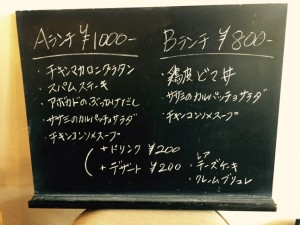 Aランチ ¥1000-
・チキンマカロニグラタン
・スパムステーキ
・アボカドのぶっかけだし
・ササミのカルパッチョサラダ
・チキンコンソメスープ
Bランチ ¥800-
・鶏皮どて丼
・ササミのカルパッチョサラダ
・チキンコンソメスープ
+ドリンク ¥200
+デザート ¥200
・レアチーズケーキ
・クレームブリュレ